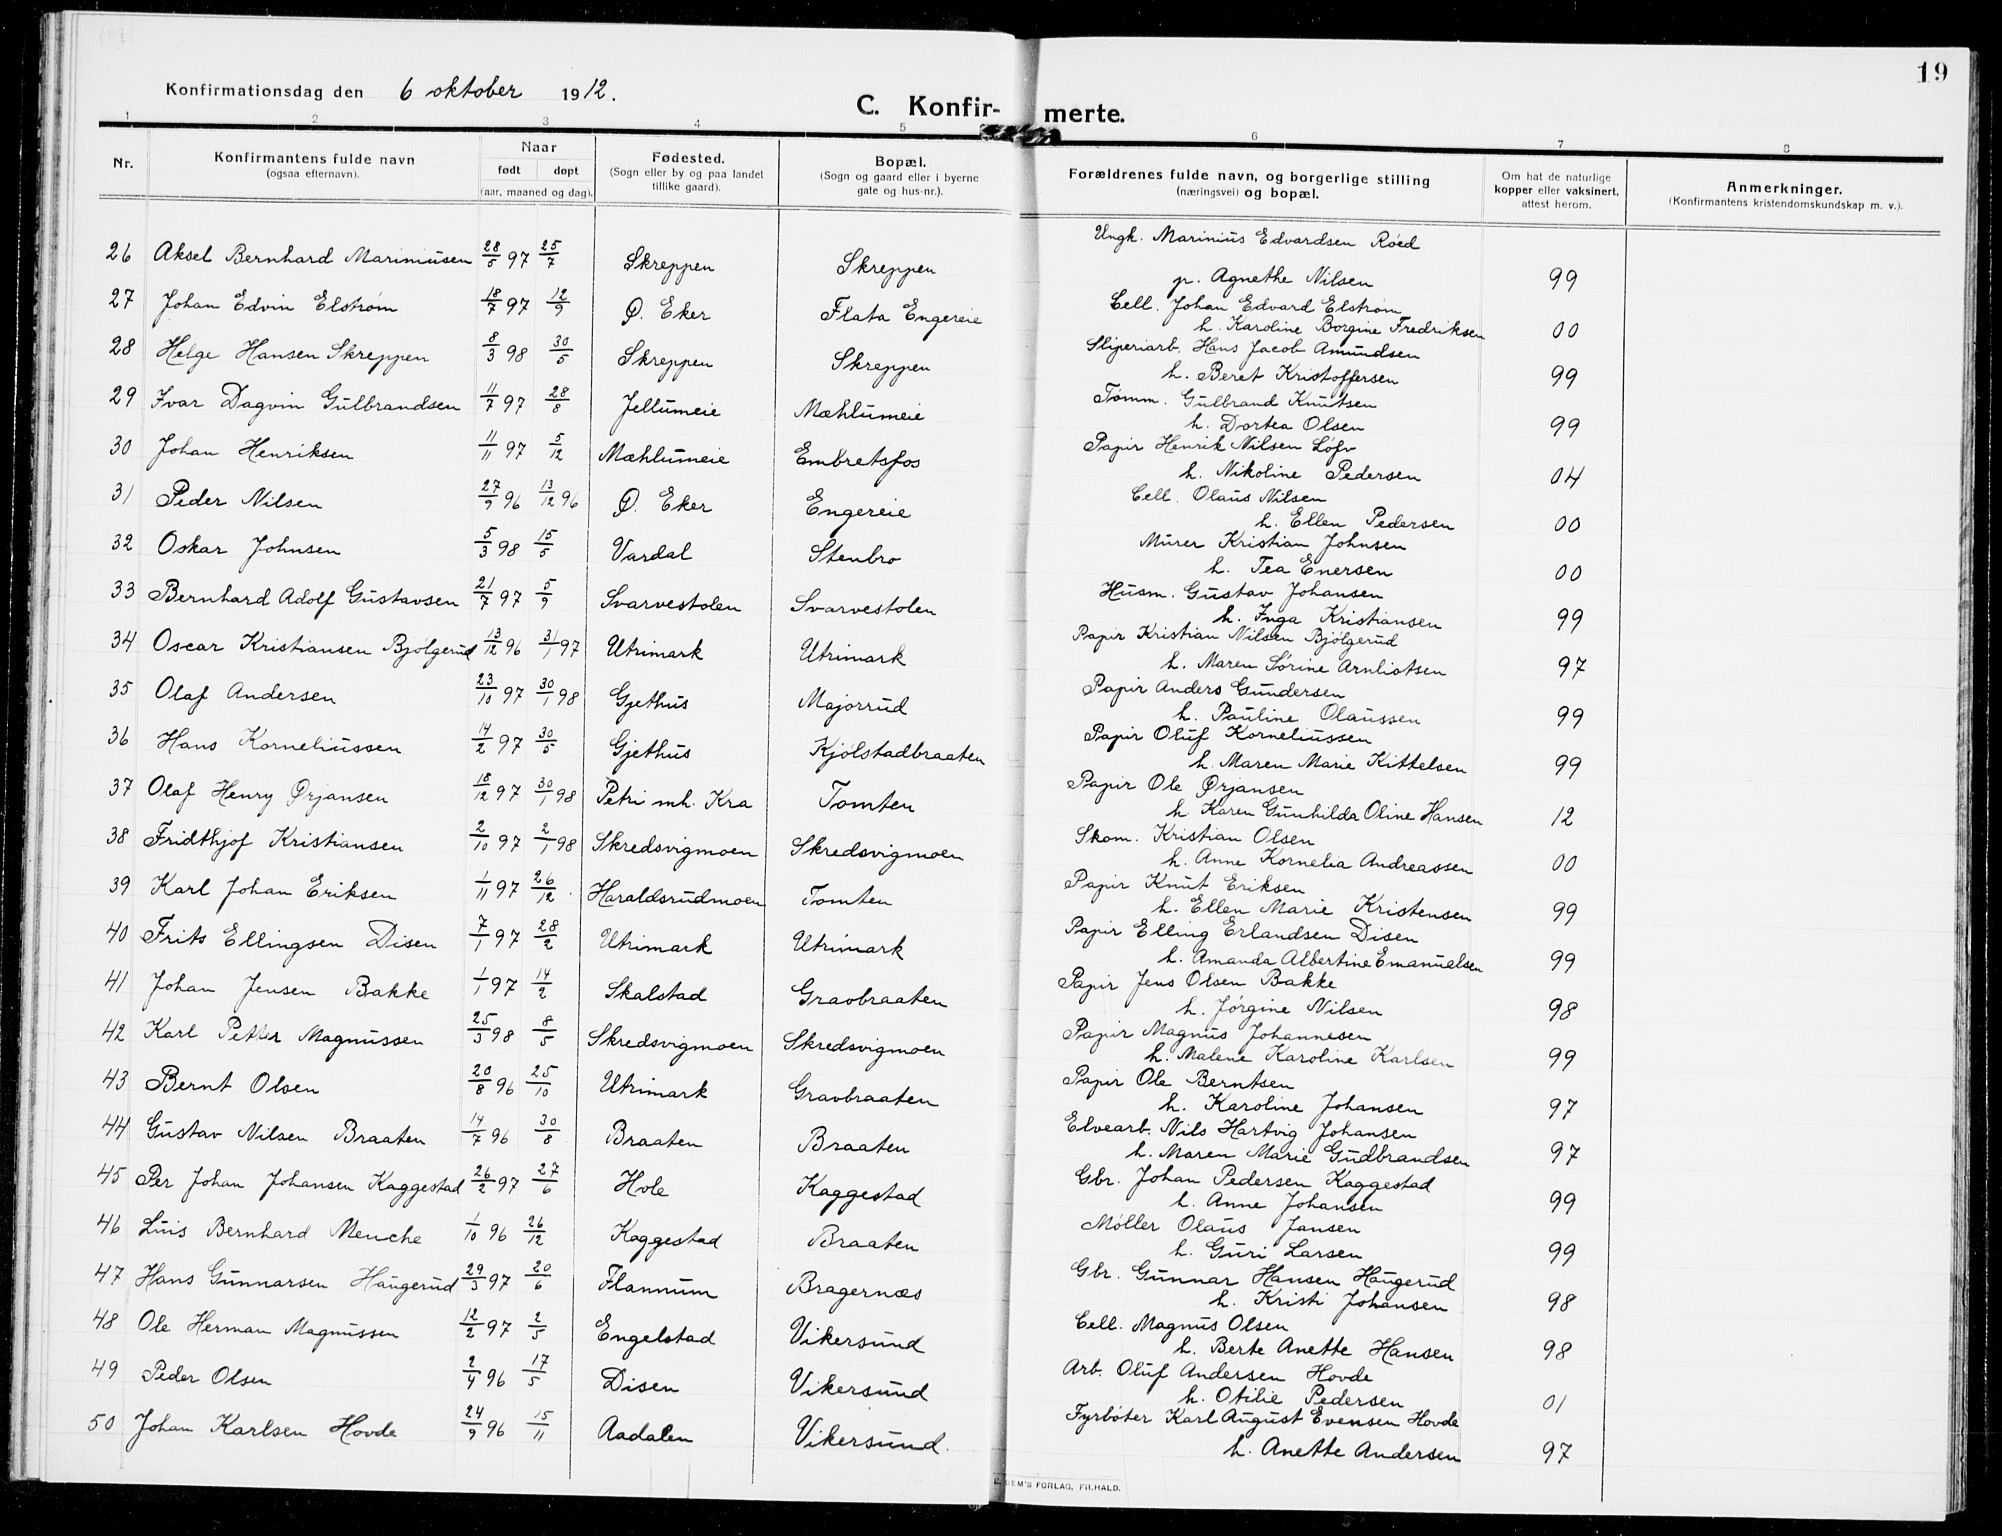 19
Konfirmationsdag den 6 oktober 1912.
C. Konfir- merte.
1 2 3 4 5 6 7 8
Nr.
Konfirmantens fulde navn
(ogsaa efternavn).
Naar
født døpt
(aar, maaned og dag).
Fødested.
(Sogn eller by og paa landet
tillike gaard).
Bopæl.
(Sogn og gaard eller i byerne
gate og hus-nr.).
Forældrenes fulde navn, og borgerlige stilling
(næringsvei) og bopæl.
Om hat de naturlige
kopper eller vaksinert,
attest herom.
Anmerkninger.
(Konfirmantens kristendomskundskap m. v.).
26 Aksel Bernhard Marinusen 28/5 97 25/7 Skreppen Skreppen Ungk. Marinius Edvardsen Röed
p. Agnethe Nilsen 99
27 Johan Edvin Elström 18/7 97 12/9 Ø. Eker Flata Engereie Cell. Johan Edvard Elström
h. Karoline Borgine Fredriksen 00
28 Helge Hansen Skreppen 8/3 98 30/5 Skreppen Skreppen Sliperiarb. Hans Jacob Amundsen
h. Beret Kristoffersen 99
29 Ivar Dagvin Gulbrandsen 11/7 97 28/8 Jellumeie Mæhlumeie Tømm. Gulbrand Knutsen
h. Dortea Olsen 99
30 Johan Henriksen 11/11 97 5/12 Mæhlumeie Embretsfos Papir Henrik Nilsen Löfv
h. Nikoline Pedersen 04
31 Peder Nilsen 27/9 96 13/12 96 Ø. Eker Engereie Cell. Olaus Nilsen
h. Ellen Pedersen 00
32 Oskar Johnsen 5/3 98 15/5 Vardal Stenbro Murer Kristian Johnsen
h. Tea Enersen 00
33 Bernhard Adolf Gustavsen 21/7 97 5/9 Svarvestolen Svarvestolen Husm. Gustav Johansen
h. Inga Kristiansen 99
34 Oscar Kristiansen Bjölgerud 13/12 96 31/1 97 Utrimark Utrimark Papir Kristian Nilsen Bjölgerud
h. Maren Sörine Arnliotsen 97
35 Olaf Andersen 23/10 97 30/1 98 Gjethus Majorrud Papir Anders Gundersen
h. Pauline Olaussen 99
36 Hans Korneliussen 14/2 97 30/5 Gjethus Kjölstadbraaten Papir Oluf Korneliussen
h. Maren Marie Kittelsen 99
37 Olaf Henry Ørjansen 18/12 97 30/1 98 Petri mh. Kra Tomten Papir Ole Ørjansen
h. Karen Gunhilda Oline Hansen 12
38 Fridthjof Kristiansen 2/10 97 2/1 98 Skredsvigmoen Skredsvigmoen Skom. Kristian Olsen
h. Anne Kornelia Andreassen 00
39 Karl Johan Eriksen 1/11 97 26/12 Haraldsrudmoen Tomten Papir Knut Eriksen
h. Ellen Marie Kristensen 99
40 Frits Ellingsen Disen 7/1 97 28/2 Utrimark Utrimark Papir Elling Erlandsen Disen
h. Amanda Albertine Emanuelsen 99
41 Johan Jensen Bakke 1/1 97 14/2 Skalstad Gravbraaten Papir Jens Olsen Bakke
h. Jörgine Nilsen 98
42 Karl Petter Magnussen 25/3 98 8/5 Skredsvigmoen Skredsvigmoen Papir Magnus Johannesen
h. Malene Karoline Karlsen 99
43 Bernt Olsen 20/8 96 25/10 Utrimark Gravbraaten Papir Ole Berntsen
h. Karoline Johansen 97
44 Gustav Nilsen Braaten 14/7 96 30/8 Braaten Braaten Elvearb. Nils Hartvig Johansen
h. Maren Marie Gudbrandsen 97
45 Per Johan Johansen Kaggestad 26/2 97 27/6 Hole Kaggestad Gbr. Johan Pedersen Kaggestad
h. Anne Johansen 99
46 Luis Bernhard Menche 1/10 96 26/12 Kaggestad Braaten Möller Olaus Jansen
h. Guri Larsen 99
47 Hans Gunnarsen Haugerud 29/3 97 20/6 Flannum Bragernæs Gbr. Gunnar Hansen Haugerud
h. Kristi Johansen 98
48 Ole Herman Magnussen 12/2 97 2/5 Engelstad Vikersund Cell. Magnus Olsen
h. Berte Anette Hansen 98
49 Peder Olsen 2/4 96 17/5 Disen Vikersund Arb. Oluf Andersen Hovde
h. Otilie Pedersen 01
50 Johan Karlsen Hovde 24/9 96 15/11 Aadalen Vikersund. Fyrböter Karl August Evensen Hovde
h. Anette Andersen 97
FORLAG, FR.HALD.